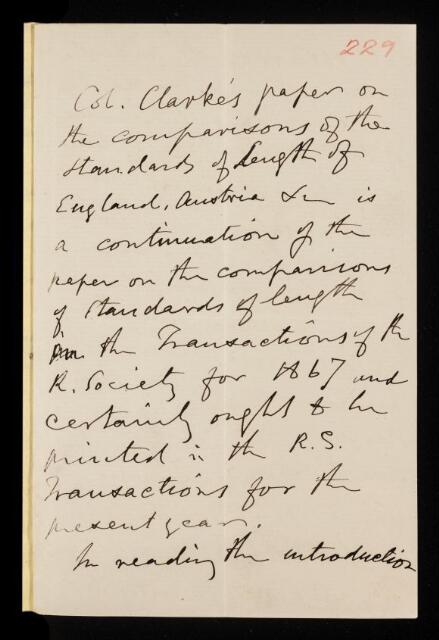 229
Col. Clarke's paper on
the comparisons of the
standards of Length of
England, Austria &c is
a continuation of the
paper on the comparisons
of standards of length
in the Transactions of the
R. Society for 1867 and
certainly ought to be
printed in the R.S.
Transactions for the
present year.
In reading the introduction